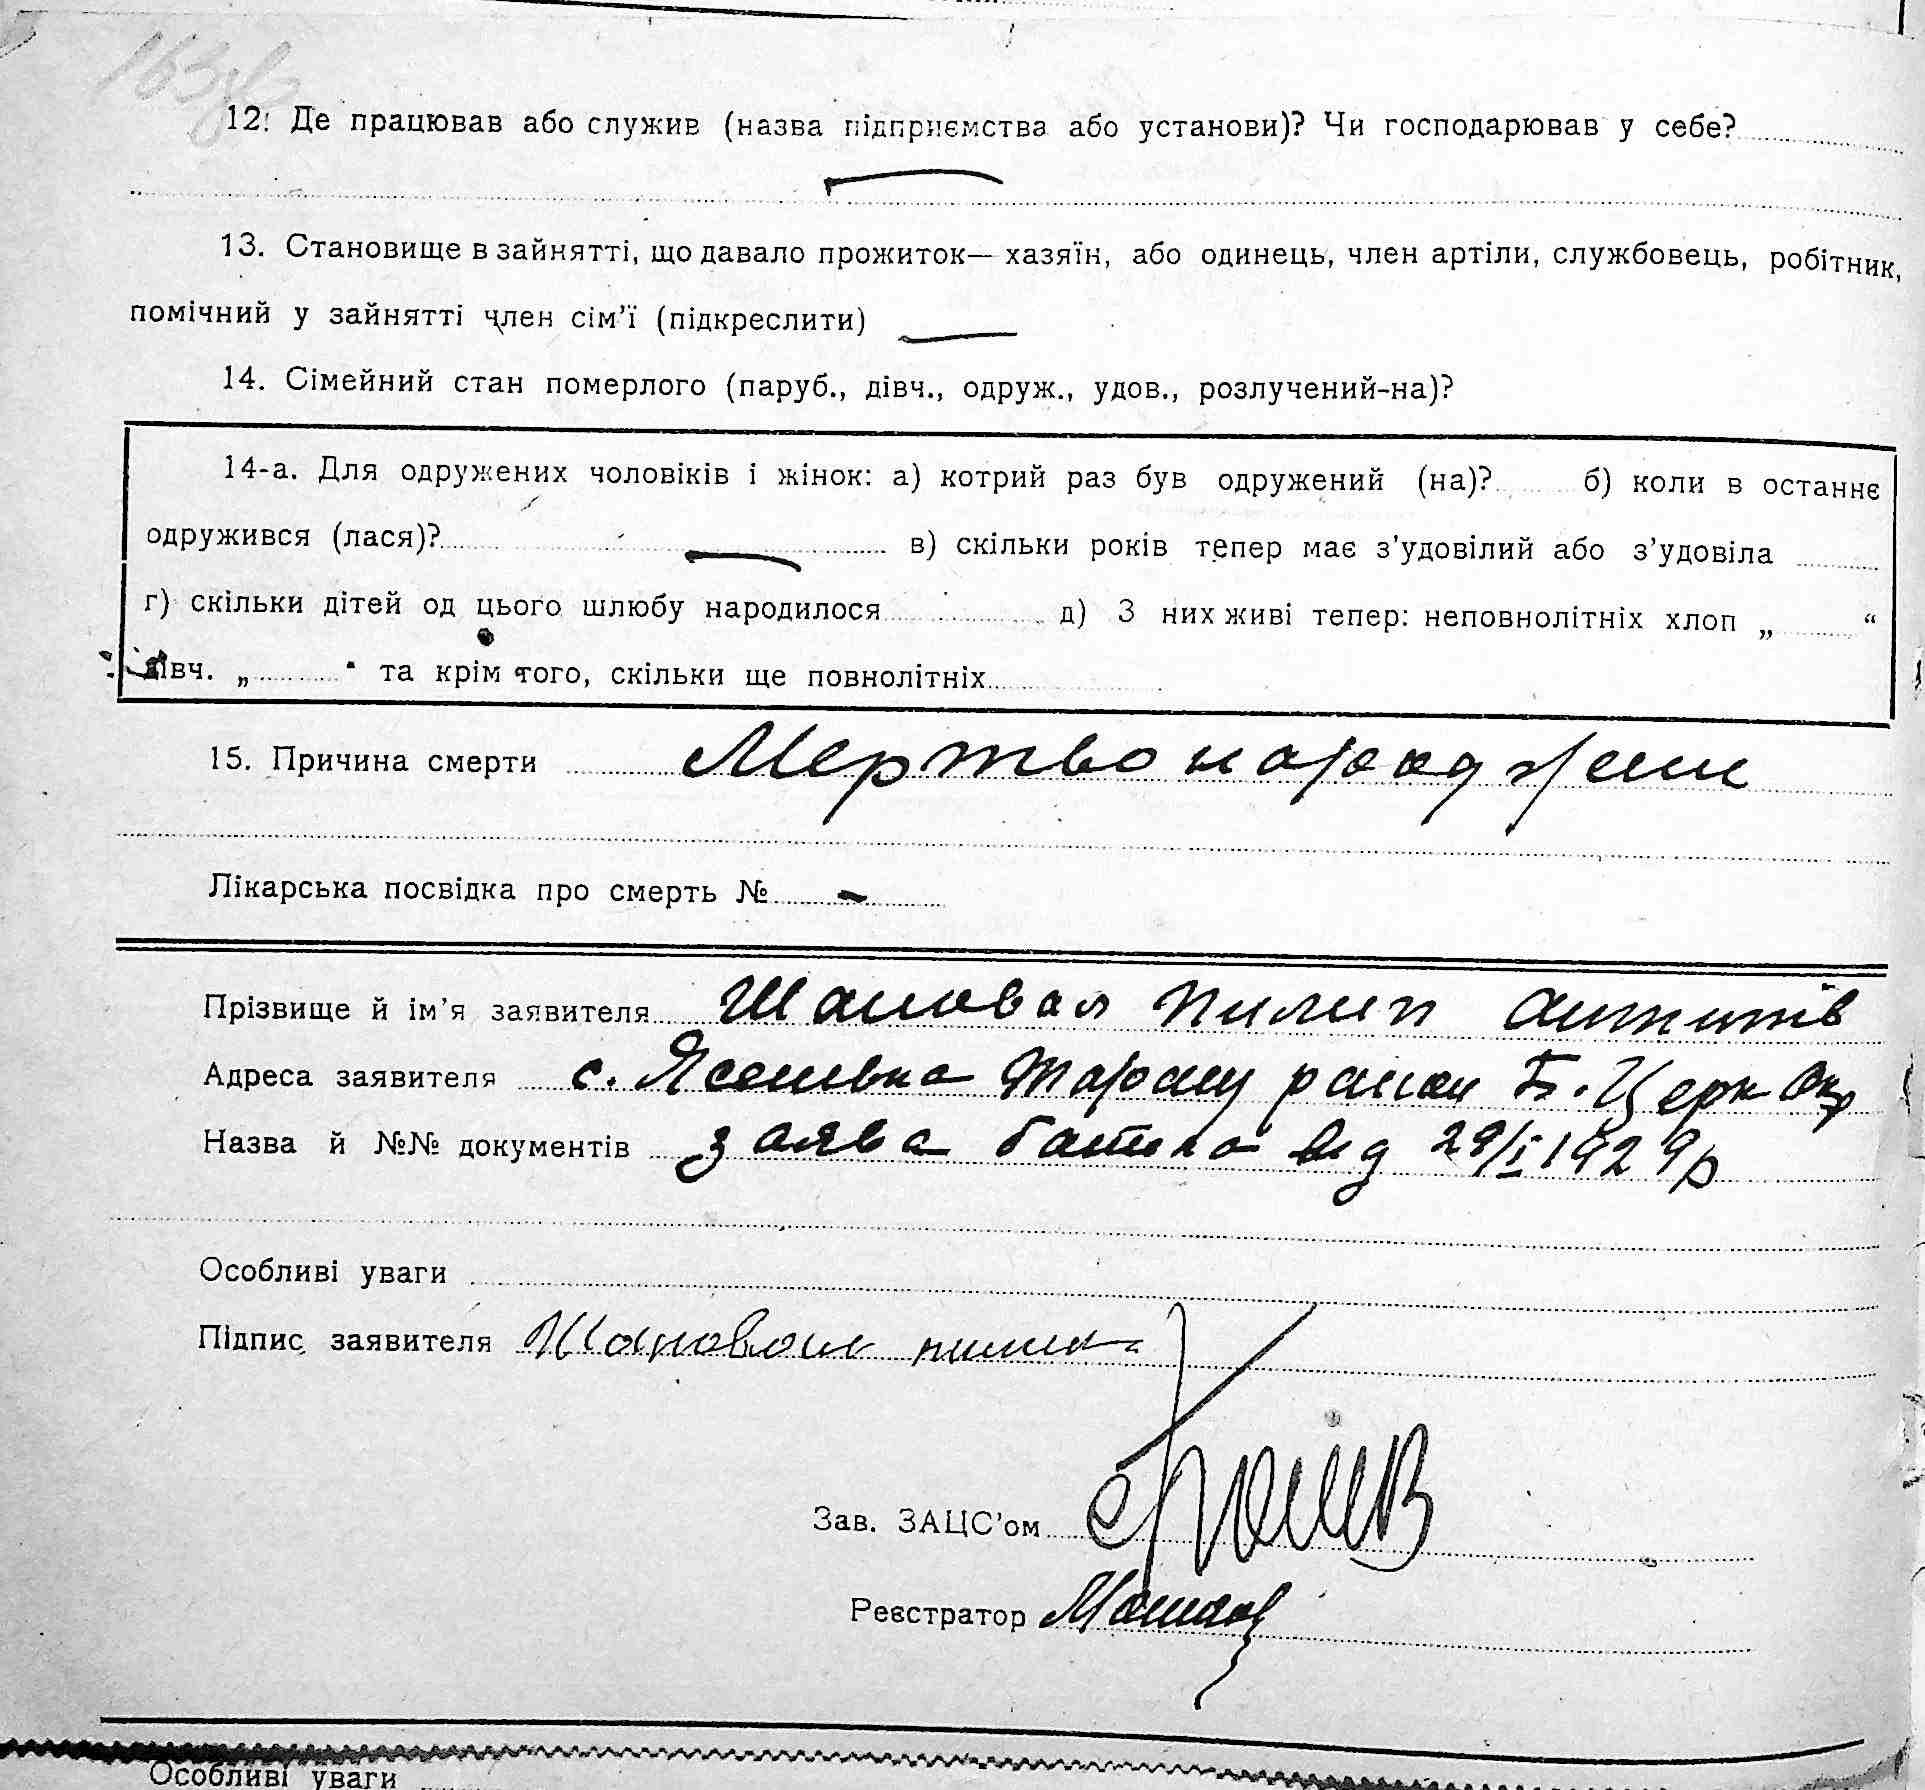 163зв
12. Де працював або служив (назва підприємства або установи)? Чи господарював у себе?
13. Становище в зайнятті, що давало прожиток— хазяїн, або одинець, член артіли, службовець, робітник,
помічний у зайнятті член сім'ї (підкреслити)
14. Сімейний стан померлого (паруб., дівч., одруж., удов., розлучений-на)?
14-а. Для одружених чоловіків і жінок: а) котрий раз був одружений (на)? б) коли в останнє
одружився (лася)? в) скільки років тепер має з'удовілий або з'удовіла
г) скільки дітей од цього шлюбу народилося д) З них живі тепер: неповнолітніх хлоп „ “
дівч. „ “ та крім того, скільки ще повнолітніх
15. Причина смерти Мертвонароджени
Лікарська посвідка про смерть № -
Прізвище й ім'я заявителя Шаповал Пилип
Адреса заявителя с. Ясенівка Таращ район Б. Церк Окр
Назва й №№ документів заява батька від 29/I 1929р
Особливі уваги
Підпис заявителя Шаповал пилип
Зав. ЗАЦС'ом
Реєстратор
Особливі уваги